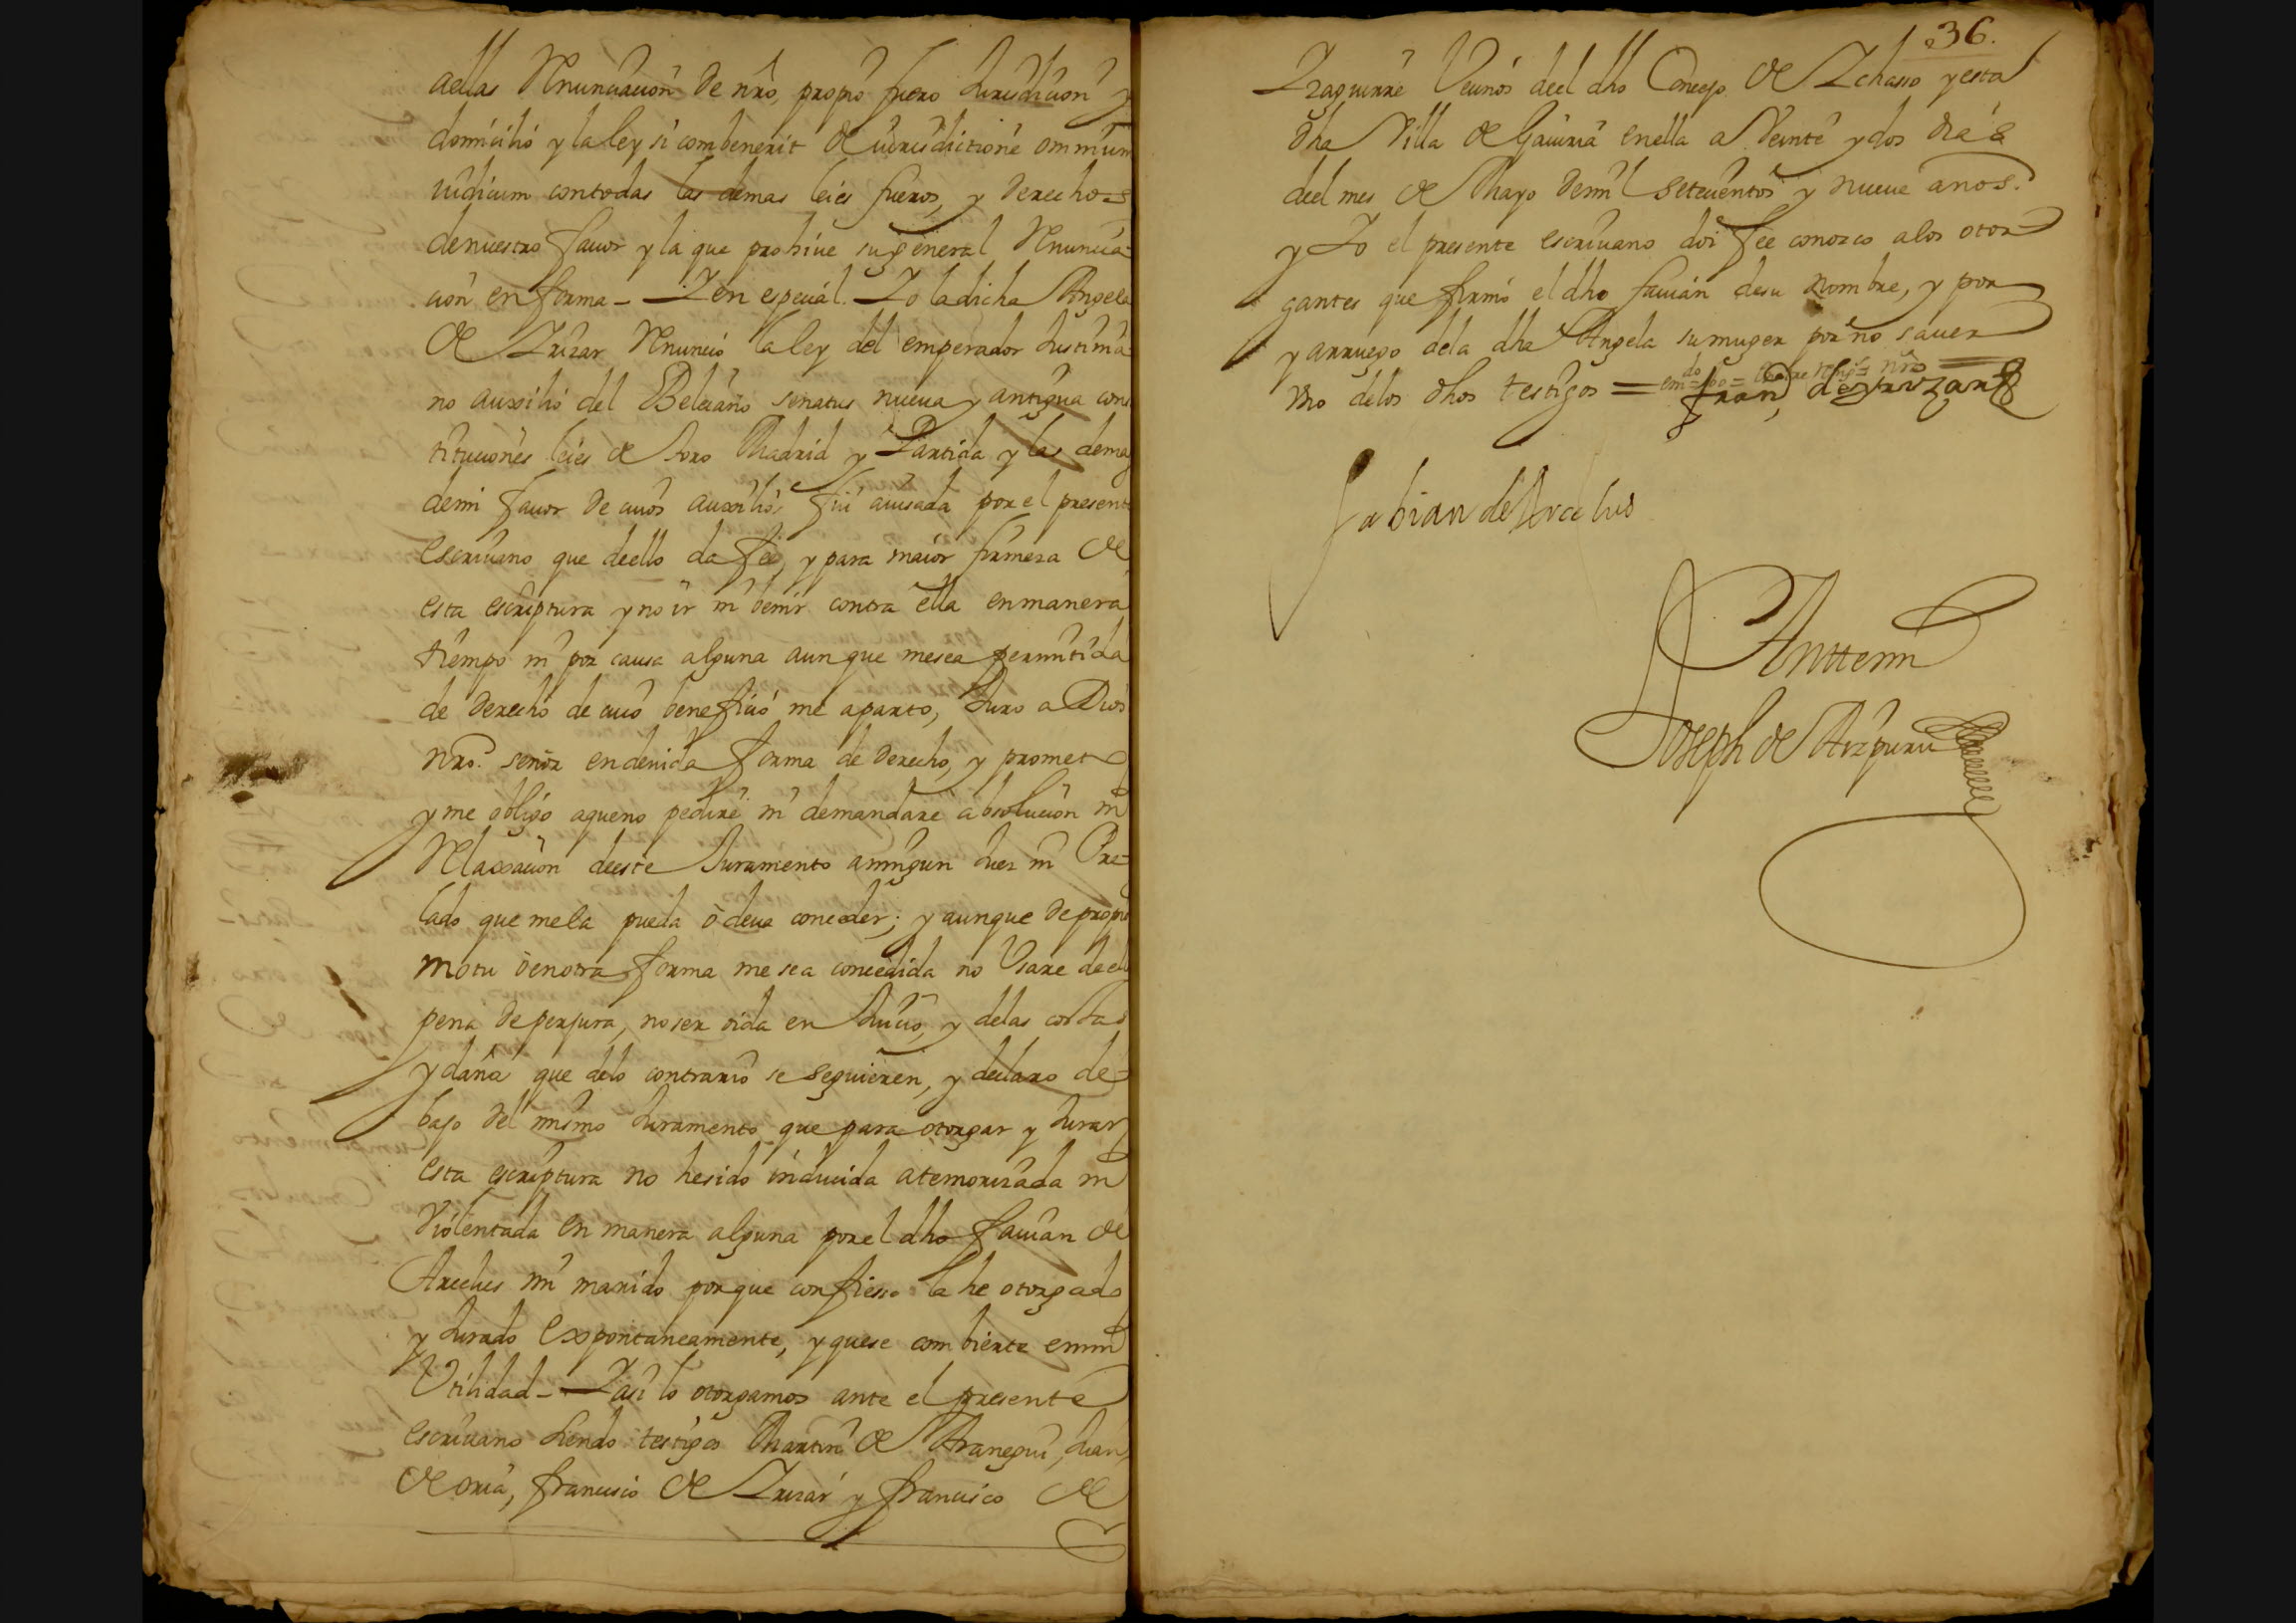 dellas Renunciacion de nro, propio fuero Jurisdicion y
domicilio y la ley si combenerit de iurisdictione omnium
iudicum contodas las demas leies fueros, y derechos
denuestro favor y la que prohive su general Renuncia
cion en forma - Y en especial. Yo la dicha Angela
de Yrizar Renuncio la ley del emperador Justinia
no auxilio del Beleiano senatus nueva y antigua cons
tituciones leies de toro Madrid y Partida y las demas
demi favor de cuios auxilios fui avisada por el presente
escrivano que deello da fee, y para maior firmeza de
esta escriptura y no ir ni benir contra ella en manera
tiempo ni por causa alguna aun que mesea permitida
de derecho de cuio beneficio me aparto, Juro a Dios
nro. señor en devida forma de derecho, y prometo
y me obligo aqueno pedire ni demandare absolucion ni
Relaxacion deeste Juramento aningun Juez ni Pre=
lado que mela pueda ò deva conceder; y aunque de propio
motu ò en otra forma me sea concedida no Usare de ella
pena de perjura, no ser oida en Juicio, y delas costas
y daños que delo contrario se seguieren, y declaro de=
bajo del mismo Juramento que para otorgar y Jurar
esta escriptura no hesido inducida atemorizada ni
Violentada en manera alguna por el dho favian de
Arcelus mi marido porque confiesso la he otorgado
y Jurado expontaneamente, y quese combierte enmi
Utilidad - Y asi lo otorgamos ante el presente
escrivano siendo testigos Martin de Aranegui, Juan
de oria, francisco de Yrizar y francisco de
36.
Yzaguirre Vecinos deel dho Concejo de Ichasso y esta
dha Villa de Gaviria en ella a Veinte y dos dias
deel mes de Mayo demil setecientos y nueve años.
y Yo el presente escrivano doi fee conozco alos otor=
gantes que firmó el dho favian desu nombre, y por
y arruego dela dha Angela su muger por no saver
Uno delos dhos testigos = fran, de yruzar
fabian de Arcelus
Antte mi
Joseph de Aizpuru